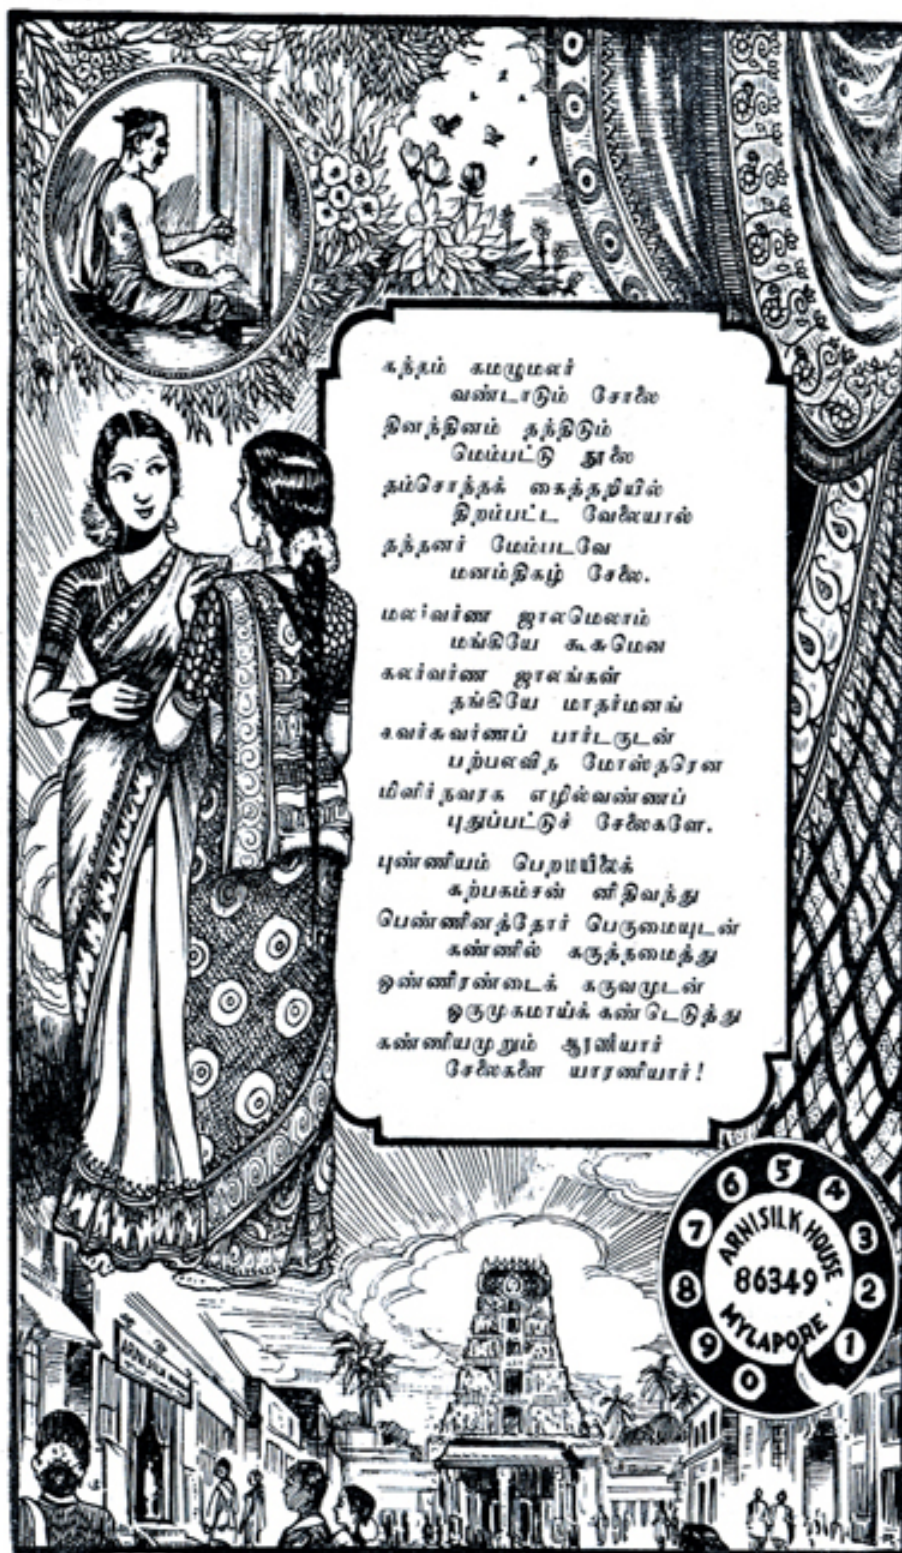 கந்தம் கமழுமலர்
வண்டாடும் சோலை
தினந்தினம் தந்திடும்
மெம்பட்டு நூலை
தம்சொந்தக் கைத்தறியில்
திறம்பட்ட வேலையால்
தந்தனர் மேம்படவே
மனம்திகழ் சேலை.
மலர்வர்ண ஜாலமெலாம்
மங்கியே கூசுமென
கலர்வர்ண ஜாலங்கள்
தங்கியே மாதர்மனங்
கவர்சுவர்ணப் பார்டருடன்
பற்பலவித மோஸ்தரென
மிளிர்நவரக எழில்வண்ணப்
புதுப்பட்டுச் சேலைகளே.
புண்ணியம் பெறமயிலைக்
கற்பகம்சன் னிதிவந்து
பெண்ணினத்தோர் பெருமையுடன்
கண்ணில் கருத்தமைத்து
ஒண்ணிரண்டைக் கருவமுடன்
ஒருமுகமாய்க் கண்டெடுத்து
கண்ணியமுறும் ஆரணியார்
சேலைகளை யாரணியார்!
5
6 4
7 3
8 2
9 1
0
ARNI SILK HOUSE
86349
MYLAPORE